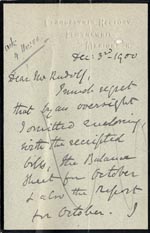 Dec: 3rd 1900
Dear Mr Rudolf,
I much regret
that by an oversight
I omitted enclosing
with the receipted
bills, the Balance
Sheet for October
& also the Report
for October. I